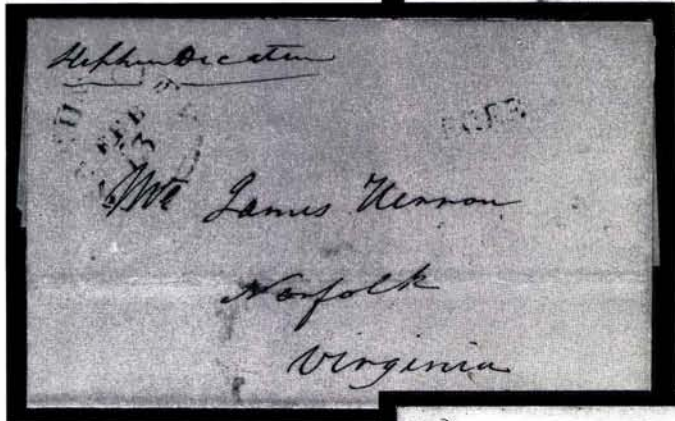 Stephen Decatur
FEB
3
FREE
James Hermon
Norfolk
Virginia